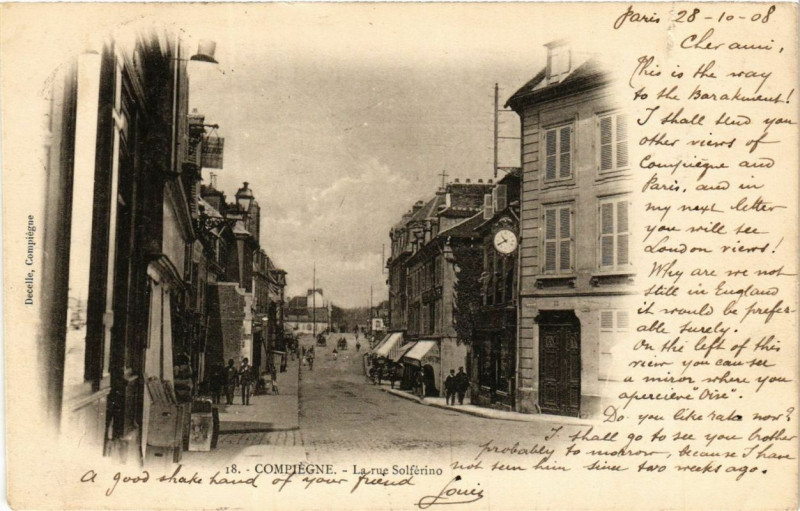 Paris 28-10-08
Cher ami,
This is the way
to the Barakment!
I shall send you
other views of
Compiègne and
Paris, and in
my next letter
you will see
London views!
Why are we not
still in England
it would be prefer-
able surely.
On the left of this
view you can see
a miror where you
apercieve "Oise".
Do you like now?
I shall go to see you brother
probably to morrow, because I have
not seen him since two weeks ago.
A good shake hand of your friend
Louis
18. - COMPIÈGNE. - La rue Solférino
Decelle, Compiègne